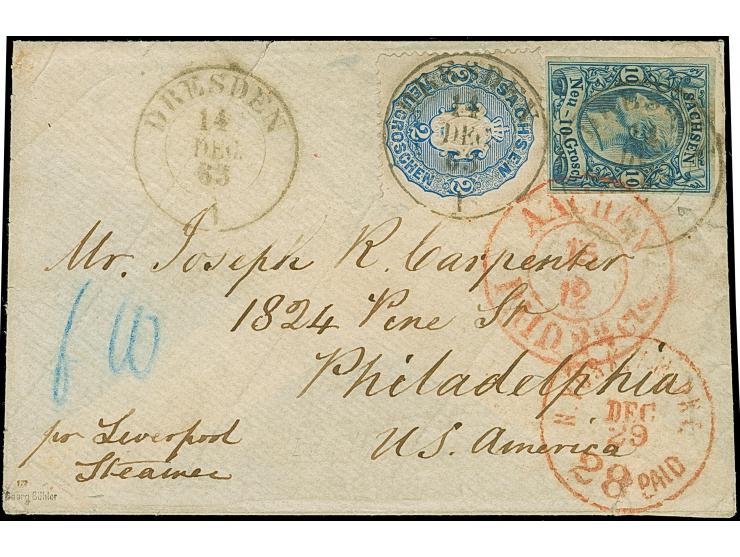 DRESDEN
14
DEC
63
1
DRESDEN
14
DEC
63
1
SACHSEN
NEUGROSCHEN
2
2
10
10
SACHSEN
Neu-10.Grosch.
10
10
AACHEN
15
12
Cts.
Mr. Joseph R. Carpenter
1824 Pine St
Philadelphia
U.S. America
f 10
pr Liverpool
Steamer
DEC
29
28 PAID
Georg Bühler